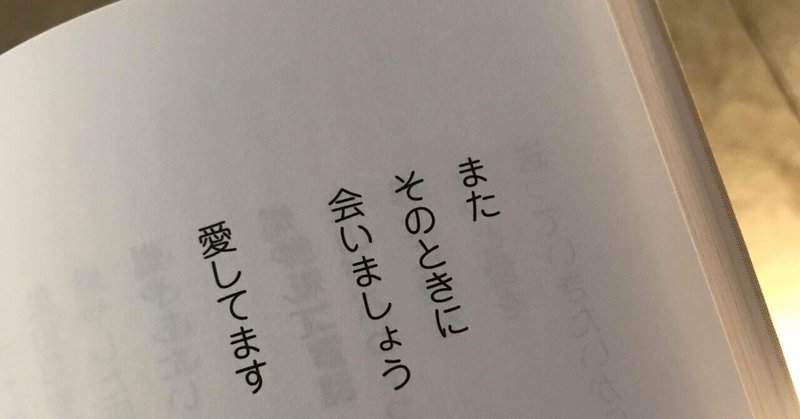 また
そのときに
会いましょう
愛してます